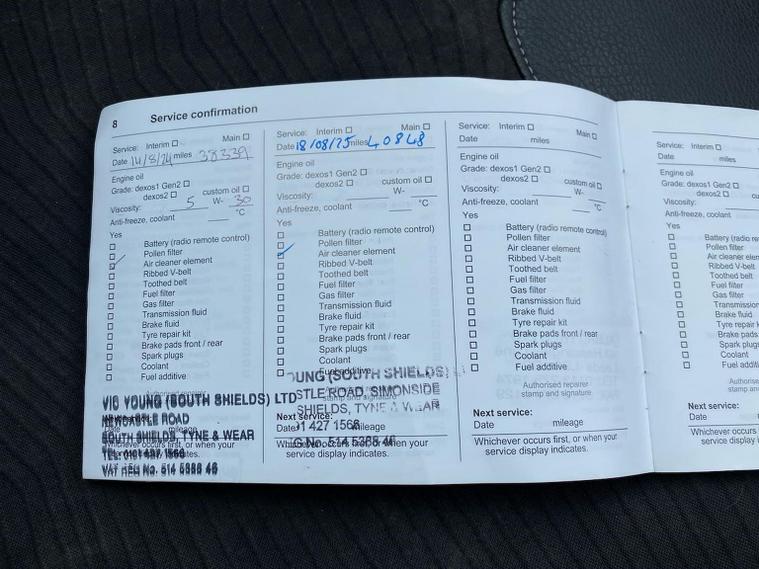 8 Service confirmation
Service: Interim ☐ Main ☐
Date 14/8/24 miles 38339
Engine oil
Grade: dexos1 Gen2 ☐ custom oil ☐
dexos2 ☐
Viscosity: 5 W- 30
Anti-freeze, coolant °C
Yes
☐ Battery (radio remote control)
☐ Pollen filter
☐ Air cleaner element
☐ Ribbed V-belt
☐ Toothed belt
☐ Fuel filter
☐ Gas filter
☐ Transmission fluid
☐ Brake fluid
☐ Tyre repair kit
☐ Brake pads front / rear
☐ Spark plugs
☐ Coolant
☐ Fuel additive
VIC YOUNG (SOUTH SHIELDS) LTD
NEWCASTLE ROAD
SOUTH SHIELDS, TYNE & WEAR
TEL: 0191 427 1566
VAT REG No. 514 5388 46
Service: Interim ☐ Main ☐
Date 18/08/25 miles 40848
Engine oil
Grade: dexos1 Gen2 ☐ custom oil ☐
dexos2 ☐
Viscosity: W-
Anti-freeze, coolant °C
Yes
☐ Battery (radio remote control)
☐ Pollen filter
☐ Air cleaner element
☐ Ribbed V-belt
☐ Toothed belt
☐ Fuel filter
☐ Gas filter
☐ Transmission fluid
☐ Brake fluid
☐ Tyre repair kit
☐ Brake pads front / rear
☐ Spark plugs
☐ Coolant
☐ Fuel additive
OUNG (SOUTH SHIELDS)
STLE ROAD, SIMONSIDE
stamp and signature
SHIELDS, TYNE & WEAR
Next service:
Date mileage
91 427 1566
G No. 514 5388 46
Whichever occurs first, or when your
service display indicates.
Service: Interim ☐ Main ☐
Date miles
Engine oil
Grade: dexos1 Gen2 ☐ custom oil ☐
dexos2 ☐
Viscosity: W-
Anti-freeze, coolant °C
Yes
☐ Battery (radio remote control)
☐ Pollen filter
☐ Air cleaner element
☐ Ribbed V-belt
☐ Toothed belt
☐ Fuel filter
☐ Gas filter
☐ Transmission fluid
☐ Brake fluid
☐ Tyre repair kit
☐ Brake pads front / rear
☐ Spark plugs
☐ Coolant
☐ Fuel additive
Authorised repairer
stamp and signature
Next service:
Date mileage
Whichever occurs first, or when your
service display indicates.
Service: Interim ☐
Date miles
Engine oil
Grade: dexos1 Gen2 ☐ cu
dexos2 ☐
Viscosity:
Anti-freeze, coolant
Yes
☐ Battery (radio re
☐ Pollen filter
☐ Air cleaner elem
☐ Ribbed V-belt
☐ Toothed belt
☐ Fuel filter
☐ Gas filter
☐ Transmission
☐ Brake fluid
☐ Tyre repair k
☐ Brake pads
☐ Spark plugs
☐ Coolant
☐ Fuel additi
Authorise
stamp and
Next service:
Date m
Whichever occurs
service display in